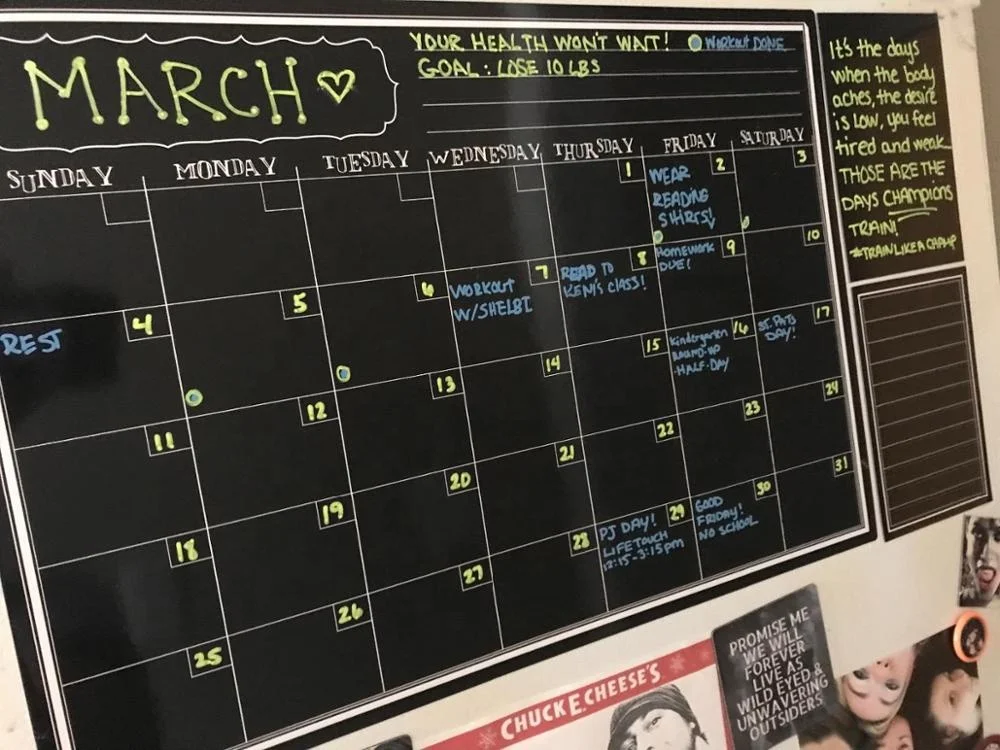 MARCH
YOUR HEALTH WON'T WAIT!
WORKOUT DONE
GOAL: LOSE 10 LBS
SUNDAY MONDAY TUESDAY WEDNESDAY THURSDAY FRIDAY SATURDAY
1
2
WEAR
READING
SHIRTS!
3
4
REST
5
6
7
WORKOUT
W/SHELBI
8
READ TO
KENI'S CLASS!
9
HOMEWORK
DUE!
10
11
12
13
14
15
16
Kindergarten
ROUND-UP
-HALF-DAY
17
ST. PATS
DAY!
18
19
20
21
22
23
24
25
26
27
28
29
PJ DAY!
LIFETOUCH
12:15-3:15pm
30
GOOD
FRIDAY!
NO SCHOOL
31
It's the days
when the body
aches, the desire
is low, you feel
tired and weak
THOSE ARE THE
DAYS CHAMPIONS
TRAIN!
#TRAINLIKEACHAMP
CHUCK E. CHEESE'S
PROMISE ME
WE WILL
FOREVER
LIVE AS
WILD EYED &
UNWAVERING
OUTSIDERS